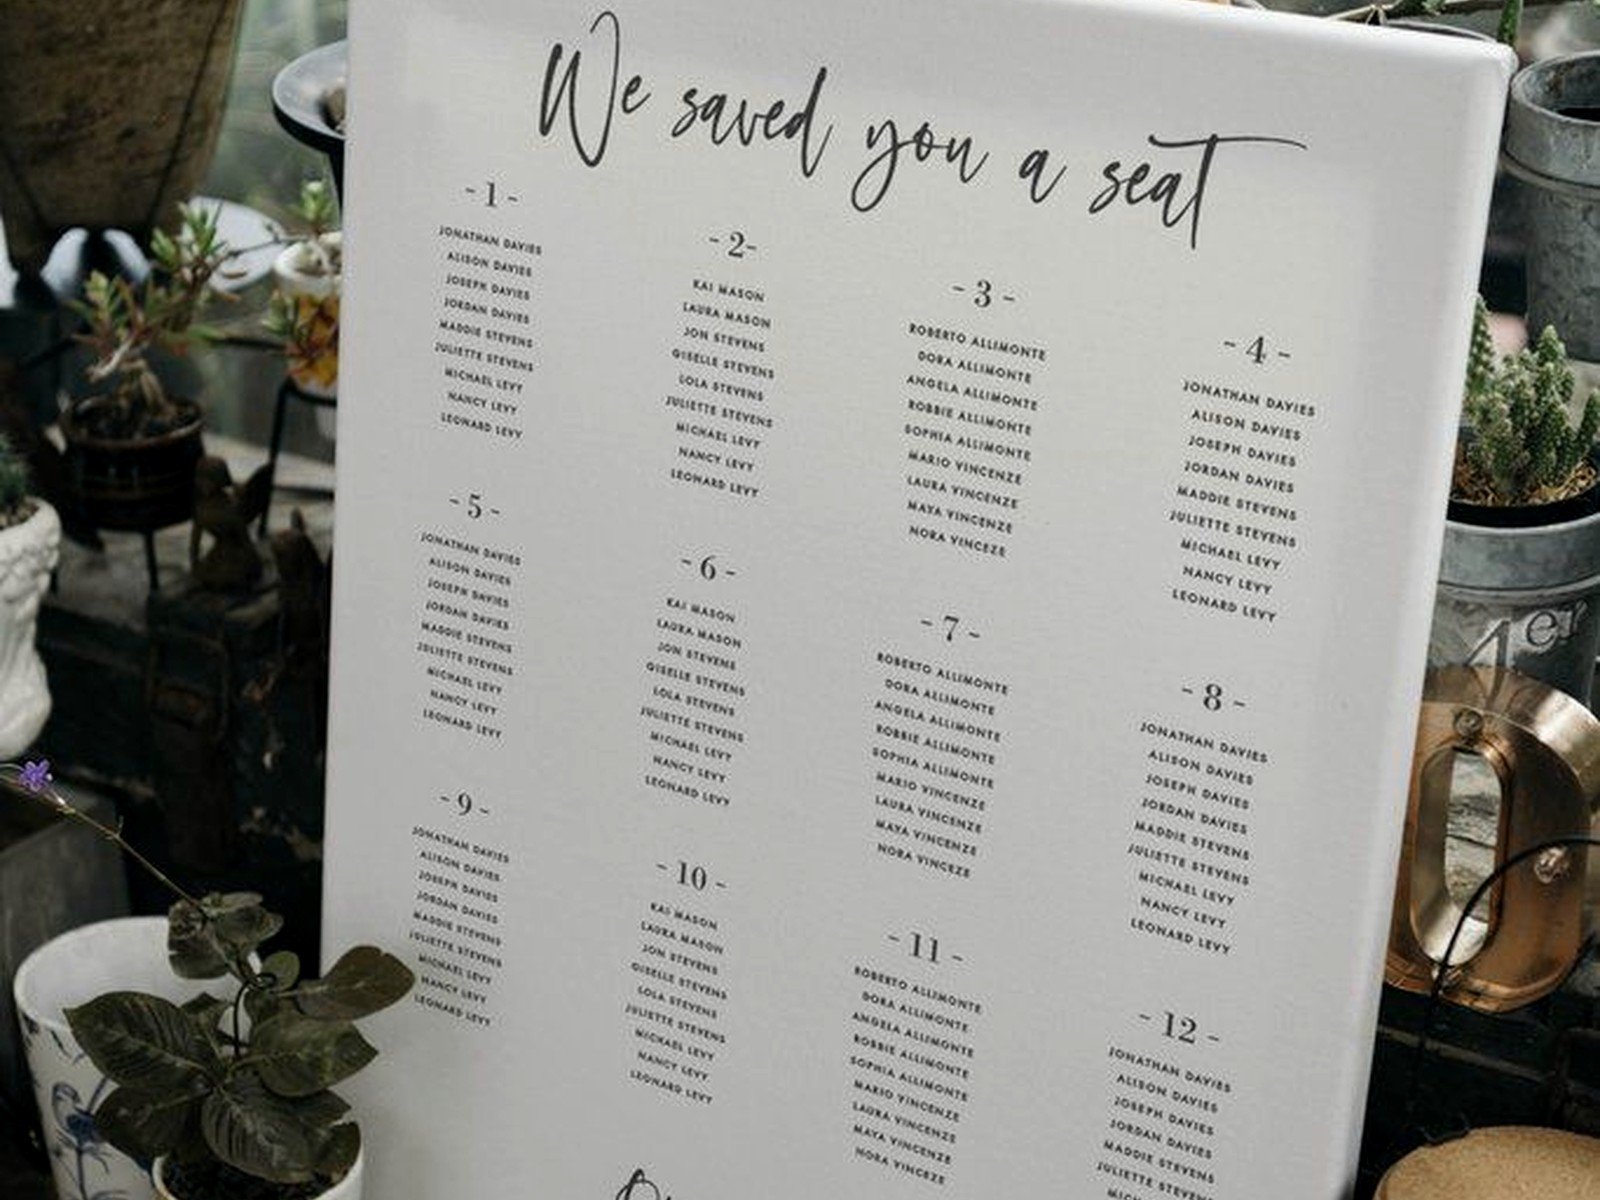 We saved you a seat
- 1 -
JONATHAN DAVIES
ALISON DAVIES
JOSEPH DAVIES
JORDAN DAVIES
MADDIE STEVENS
JULIETTE STEVENS
MICHAEL LEVY
NANCY LEVY
LEONARD LEVY
- 2 -
KAI MASON
LAURA MASON
JON STEVENS
GISELLE STEVENS
LOLA STEVENS
JULIETTE STEVENS
MICHAEL LEVY
NANCY LEVY
LEONARD LEVY
- 3 -
ROBERTO ALLIMONTE
DORA ALLIMONTE
ANGELA ALLIMONTE
ROBBIE ALLIMONTE
SOPHIA ALLIMONTE
MARIO VINCENZE
LAURA VINCENZE
MAYA VINCENZE
NORA VINCEZE
- 4 -
JONATHAN DAVIES
ALISON DAVIES
JOSEPH DAVIES
JORDAN DAVIES
MADDIE STEVENS
JULIETTE STEVENS
MICHAEL LEVY
NANCY LEVY
LEONARD LEVY
- 5 -
JONATHAN DAVIES
ALISON DAVIES
JOSEPH DAVIES
JORDAN DAVIES
MADDIE STEVENS
JULIETTE STEVENS
MICHAEL LEVY
NANCY LEVY
LEONARD LEVY
- 6 -
KAI MASON
LAURA MASON
JON STEVENS
GISELLE STEVENS
LOLA STEVENS
JULIETTE STEVENS
MICHAEL LEVY
NANCY LEVY
LEONARD LEVY
- 7 -
ROBERTO ALLIMONTE
DORA ALLIMONTE
ANGELA ALLIMONTE
ROBBIE ALLIMONTE
SOPHIA ALLIMONTE
MARIO VINCENZE
LAURA VINCENZE
MAYA VINCENZE
NORA VINCEZE
- 8 -
JONATHAN DAVIES
ALISON DAVIES
JOSEPH DAVIES
JORDAN DAVIES
MADDIE STEVENS
JULIETTE STEVENS
MICHAEL LEVY
NANCY LEVY
LEONARD LEVY
- 9 -
JONATHAN DAVIES
ALISON DAVIES
JOSEPH DAVIES
JORDAN DAVIES
MADDIE STEVENS
JULIETTE STEVENS
MICHAEL LEVY
NANCY LEVY
LEONARD LEVY
- 10 -
KAI MASON
LAURA MASON
JON STEVENS
GISELLE STEVENS
LOLA STEVENS
JULIETTE STEVENS
MICHAEL LEVY
NANCY LEVY
LEONARD LEVY
- 11 -
ROBERTO ALLIMONTE
DORA ALLIMONTE
ANGELA ALLIMONTE
ROBBIE ALLIMONTE
SOPHIA ALLIMONTE
MARIO VINCENZE
LAURA VINCENZE
MAYA VINCENZE
NORA VINCEZE
- 12 -
JONATHAN DAVIES
ALISON DAVIES
JOSEPH DAVIES
JORDAN DAVIES
MADDIE STEVENS
JULIETTE STEVENS
1er
O